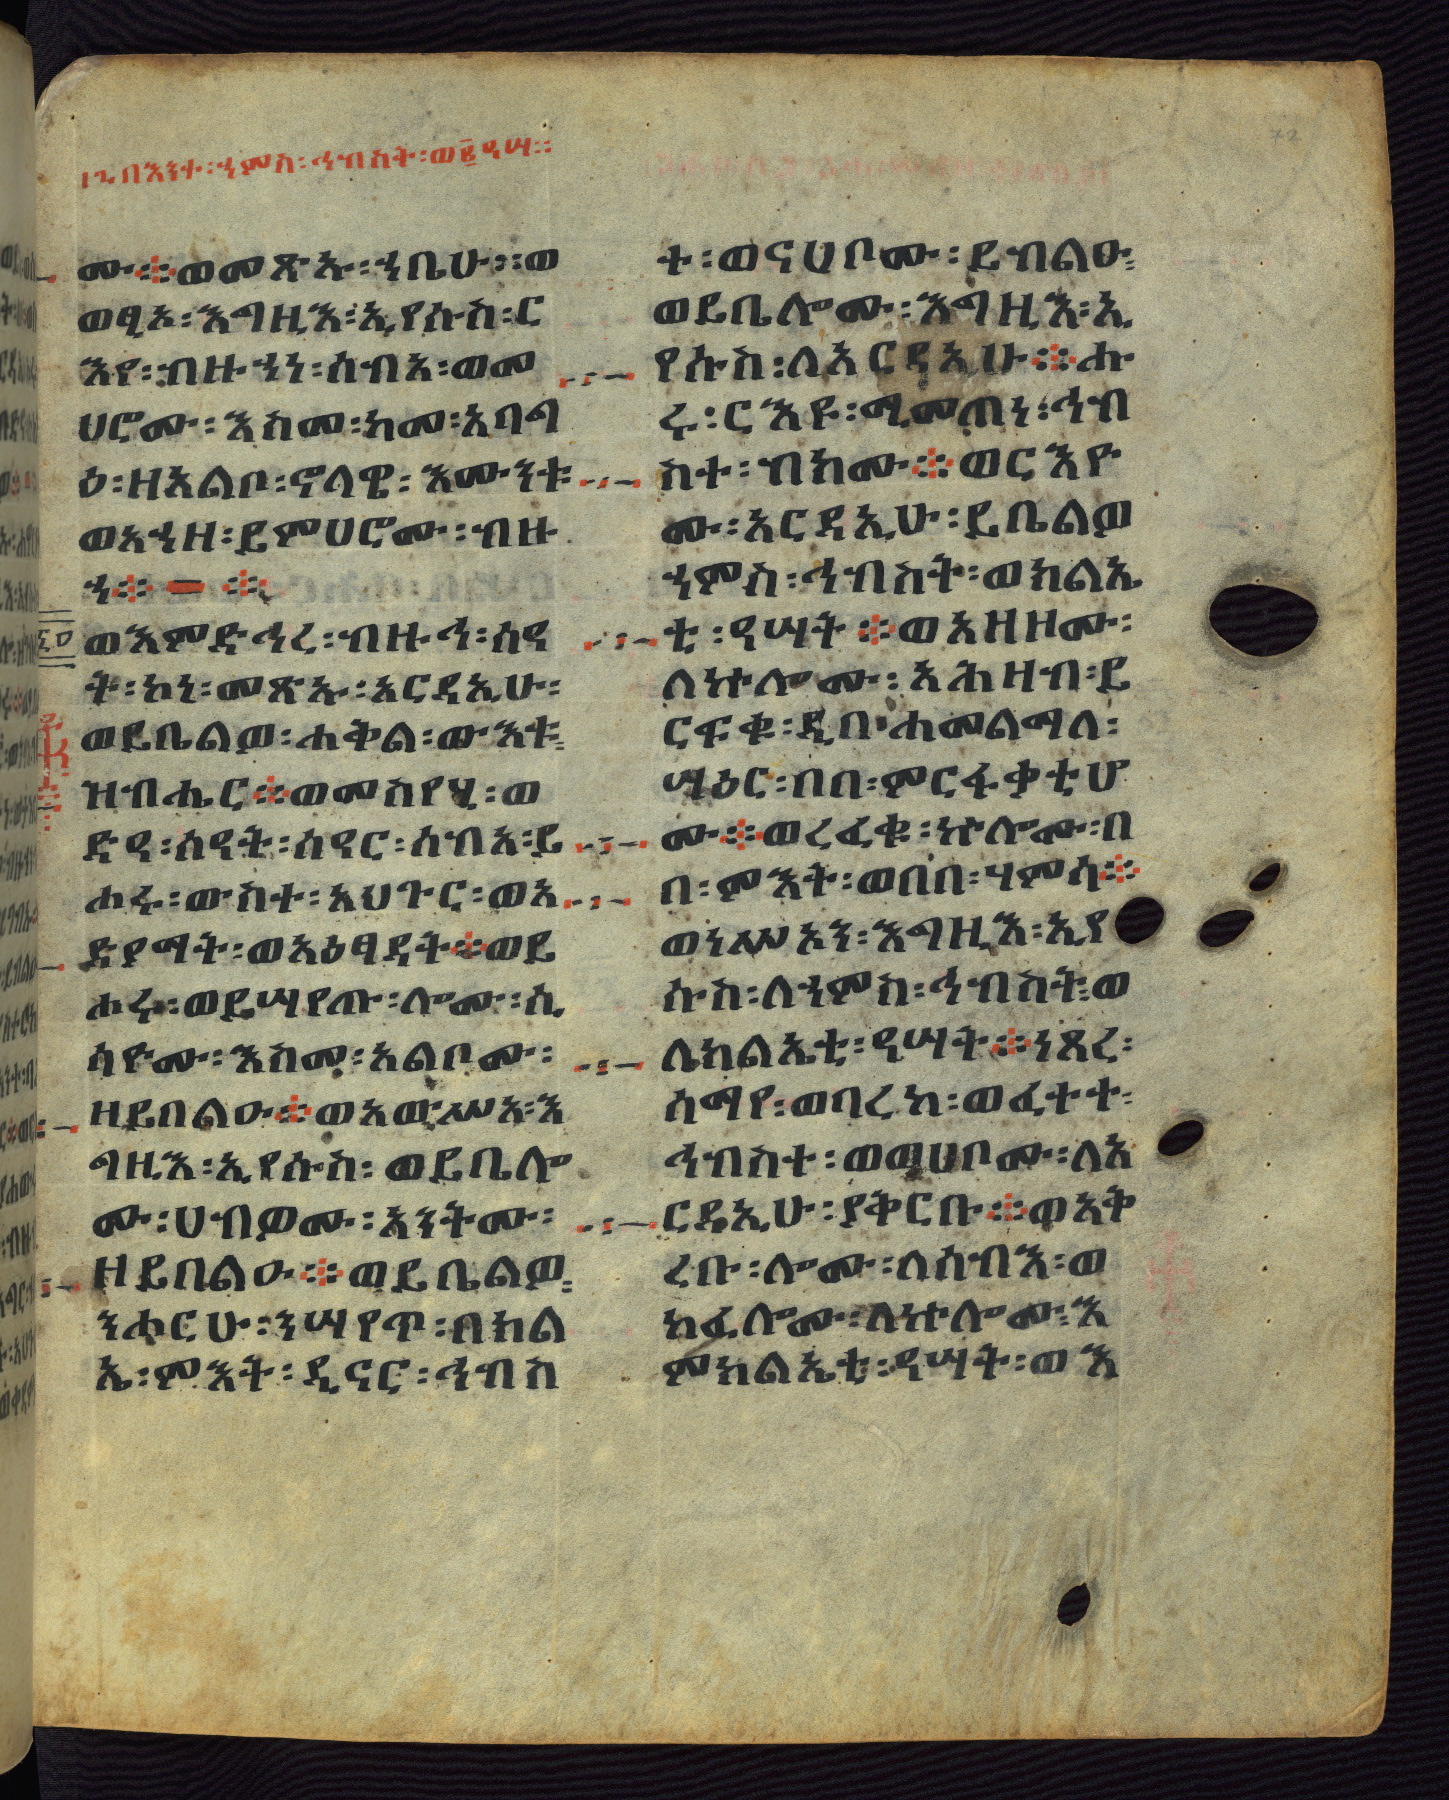 ፲፯በእንተ፡ኀምስ፡ኅብስት፡ወ፪ዓሣ።
ሙ፨ወመጽኡ፡ኀቤሁ፡፡ወ
ወፂኦ፡እግዚእ፡ኢየሱስ፡ር
እየ፡ብዙኀነ፡ሰብአ፡ወመ
ሀሮሙ፡እስመ፡ከመ፡አባግ
ዕ፡ዘአልቦ፡ኖላዊ፡እሙንቱ፡
ወአኀዘ፡ይምሀሮሙ፡ብዙ
ኀ፨ — ፨
ወእምድኅረ፡ብዙኅ፡ሰዓ
ት፡ኮነ፡መጽኡ፡አርዳኢሁ፡
ወይቤልዎ፡ሐቅል፡ውእቱ፡
ዝብሔር፨ወመስየሂ፡ወ
ድዓ፡ሰዓት፡ስዓር፡ሰብአ፡ይ
ሐሩ፡ውስተ፡አህጉር፡ወአ
ድያማት፡ወአዕፃዳት፨ወይ
ሐሩ፡ወይሣየጡ፡ሎሙ፡ሲ
ሳዮሙ፡እስመ፡አልቦሙ፡
ዘይበልዑ፨ወአውሥአ፡እ
ግዚእ፡ኢየሱስ፡ወይቤሎ
ሙ፡ሀብዎሙ፡አንትሙ፡
ዘይበልዑ፨ወይቤልዎ፡
ንሑርሁ፡ንሣየጥ፡በክል
ኤ፡ምእት፡ዲናር፡ኅብስ
ተ፡ወናሀቦሙ፡ይብልዑ፡
ወይቤሎሙ፡እግዚእ፡ኢ
የሱስ፡ለአርዳኢሁ፨ሑ
ሩ፡ርእዩ፡ሚመጠነ፡ኅብ
ስተ፡ብክሙ፨ወርእዮ
ሙ፡አርዳኢሁ፡ይቤልዎ
ኀምስ፡ኅብስት፡ወክልኤ
ቲ፡ዓሣት፨ወአዘዞሙ፡
ለኵሎሙ፡አሕዛብ፡ይ
ርፍቁ፡ዲበ፡ሐመልማለ፡
ሣዕር፡በበ፡ምርፋቃቲሆ
ሙ፨ወረፈቁ፡ኵሎሙ፡በ
በ፡ምእት፡ወበበ፡ሃምሳ፨
ወነሥአን፡እግዚእ፡ኢየ
ሱስ፡ለኀምስ፡ኅብስት፡ወ
ለክልኤቲ፡ዓሣት፨ነጸረ፡
ሰማየ፡ወባረከ፡ወፈተተ፡
ኅብስተ፡ወወሀቦሙ፡ለአ
ርዴኢሁ፡ያቅርቡ፨ወአቅ
ረቡ፡ሎሙ፡ለሰብእ፡ወ
ከፈሎሙ፡ለኵሎሙ፡እ
ምክልኤቲ፡ዓሣት፡ወእ